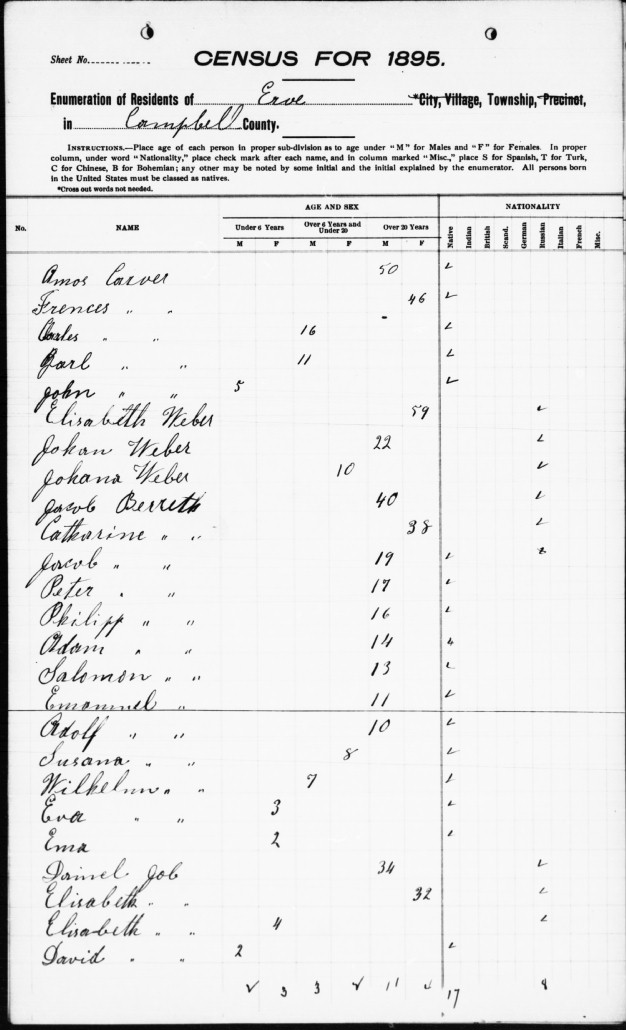 Sheet No.
CENSUS FOR 1895.
Enumeration of Residents of Erve *City, Village, Township, Precinct,
in Campbell County.
INSTRUCTIONS.—Place age of each person in proper sub-division as to age under "M" for Males and "F" for Females. In proper
column, under word "Nationality," place check mark after each name, and in column marked "Misc.," place S for Spanish, T for Turk,
C for Chinese, B for Bohemian; any other may be noted by some initial and the initial explained by the enumerator. All persons born
in the United States must be classed as natives.
*Cross out words not needed.
No. NAME AGE AND SEX NATIONALITY
Under 6 Years Over 6 Years and Under 20 Over 20 Years
M F M F M F Native Indian British Scand. German Russian Italian French Misc.
Amos Carver 50 ✓
Frences " " 46 ✓
" " 16 ✓
" " 11 ✓
John " " 5 ✓
Elisabeth Weber 59 ✓
Johan Weber 22 ✓
Johana Weber 10 ✓
Jacob Berreth 40 ✓
Catharine " " 38 ✓
Jacob " " 19 ✓
Peter " " 17 ✓
Philipp " " 16 ✓
Adam " " 14
Salomon " " 13 ✓
Emannuel " 11 ✓
Adolf " " 10 ✓
Susana " " 8 ✓
Wilhelm " " 7 ✓
Eva " " 3 ✓
Ema 2 ✓
Dainel Job 34 ✓
Elisabeth " " 32 ✓
Elisabeth " " 4 ✓
David " " 2 ✓
3 3 11 4 17 8